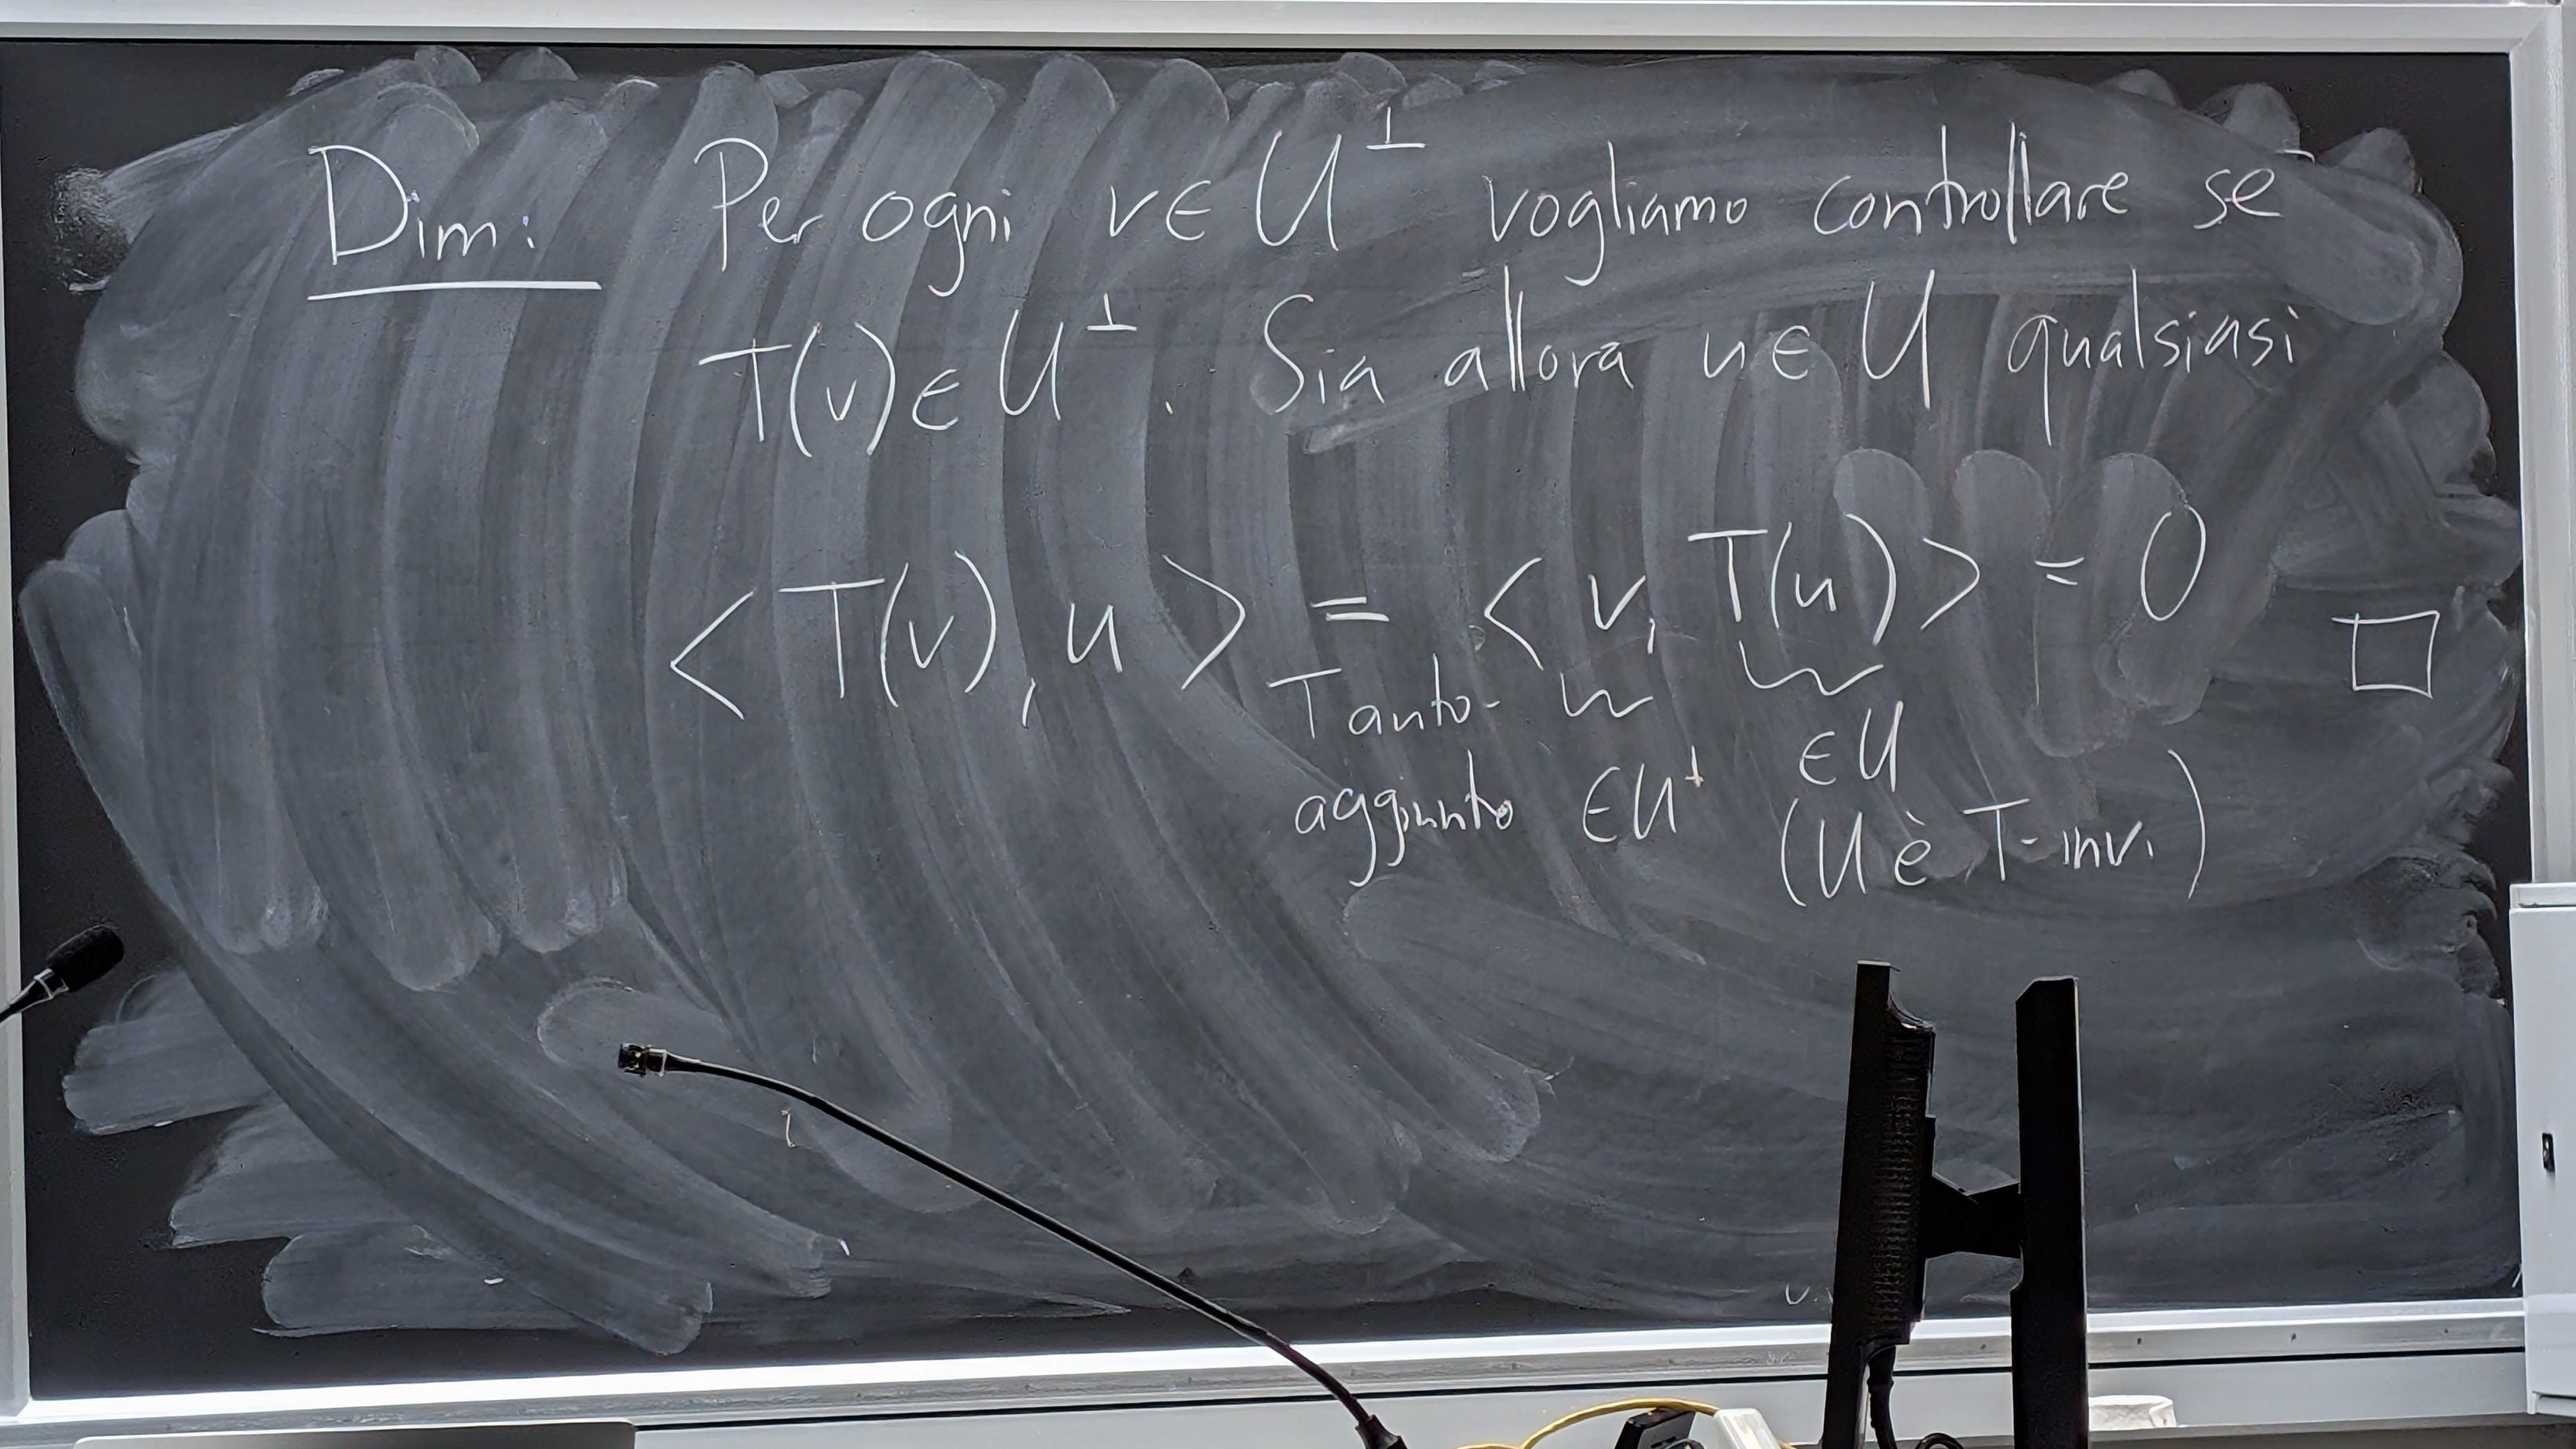 Dim: Per ogni v∈U^⊥ vogliamo controllare se
T(v)∈U^⊥. Sia allora u∈U qualsiasi
<T(v), u> = <v, T(u)> = 0 □
T auto- ∈U
aggiunto ∈U^⊥ (U è T-inv.)